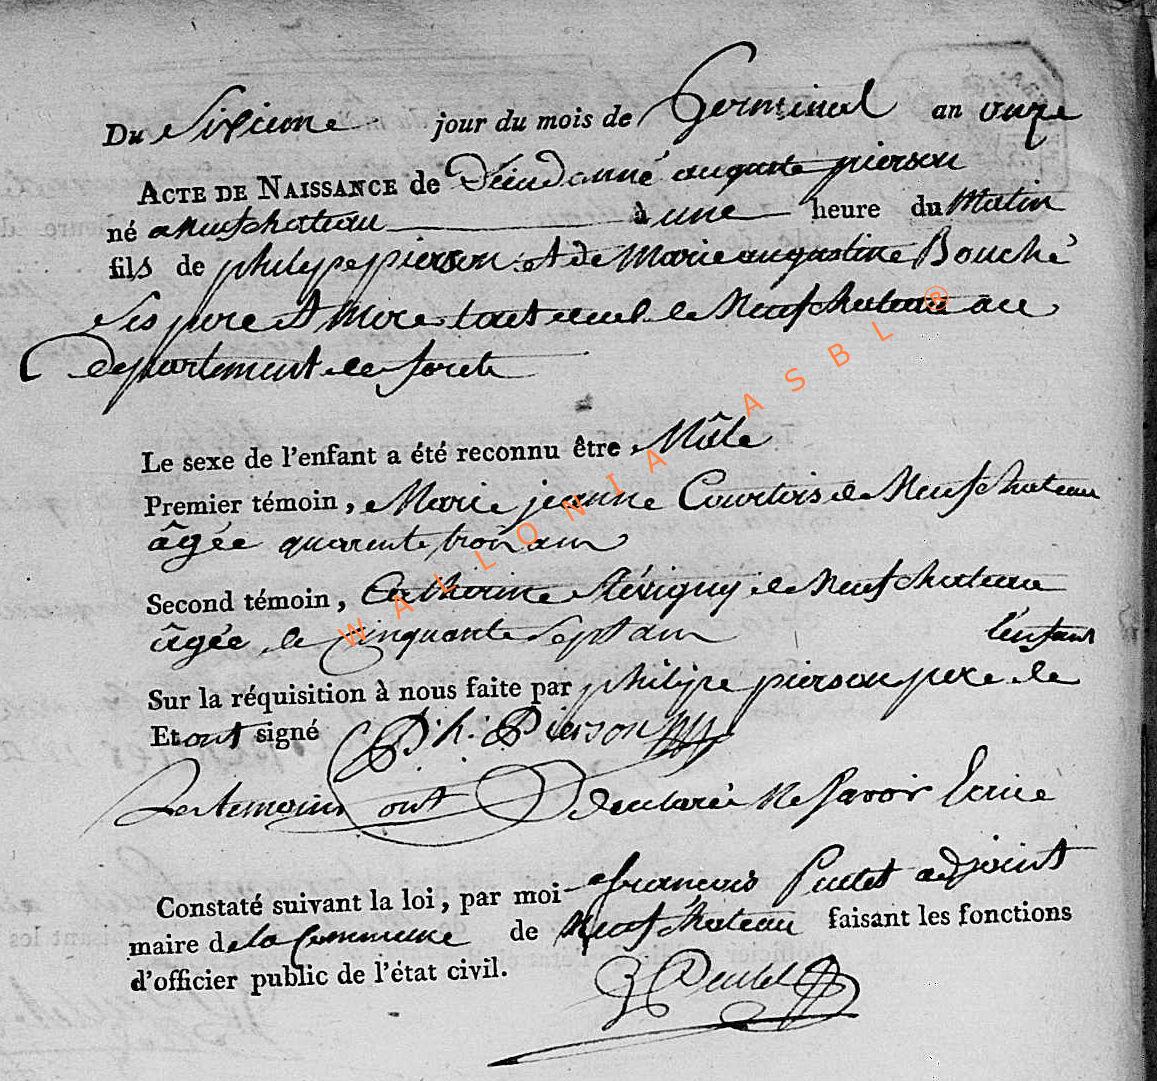 Du Sixieme jour du mois de Germinal an onze
ACTE DE NAISSANCE de Dieudonné auguste pierson
né a neufchateau à une heure du Matin
fils de philippe pierson et de Marie augustine Bouché
ses pere et Mere tout deux de Neufchateau au
Departement de forets
Le sexe de l'enfant a été reconnu être Mâle
Premier témoin, Marie jeanne Courtois de Neufchateau
âgée quarente trois ans
Second témoin, Catherine de Neufchateau
âgée de Cinquante Sept ans
l'enfant
Sur la réquisition à nous faite par philippe pierson pere de
Et ont signé Ph. Pierson
Les temoins ont Declarée Ne Savoir Ecrire
Constaté suivant la loi, par moi françois adjoint
maire de la Commune de Neufchateau faisant les fonctions
d'officier public de l'état civil.
WALLONIA ASBL ®